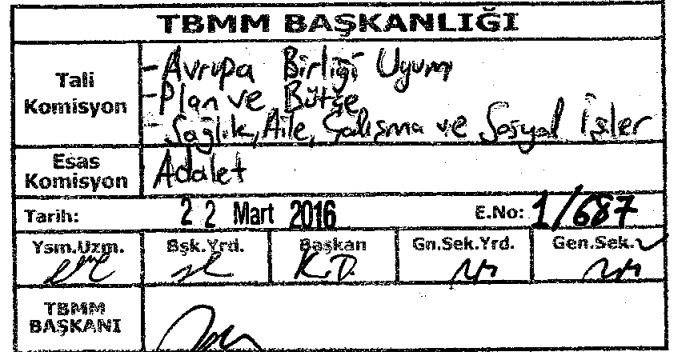 TBMM BAŞKANLIĞI
Tali Komisyon
-Avrupa Birliği Uyum
-Plan ve Bütçe
-Sağlık, Aile, Çalışma ve Sosyal İşler
Esas Komisyon
Adalet
Tarih: 22 Mart 2016 E.No: 1/687
Ysm.Uzm. Bşk.Yrd. Başkan Gn.Sek.Yrd. Gen.Sek.
K.D.
TBMM BAŞKANI